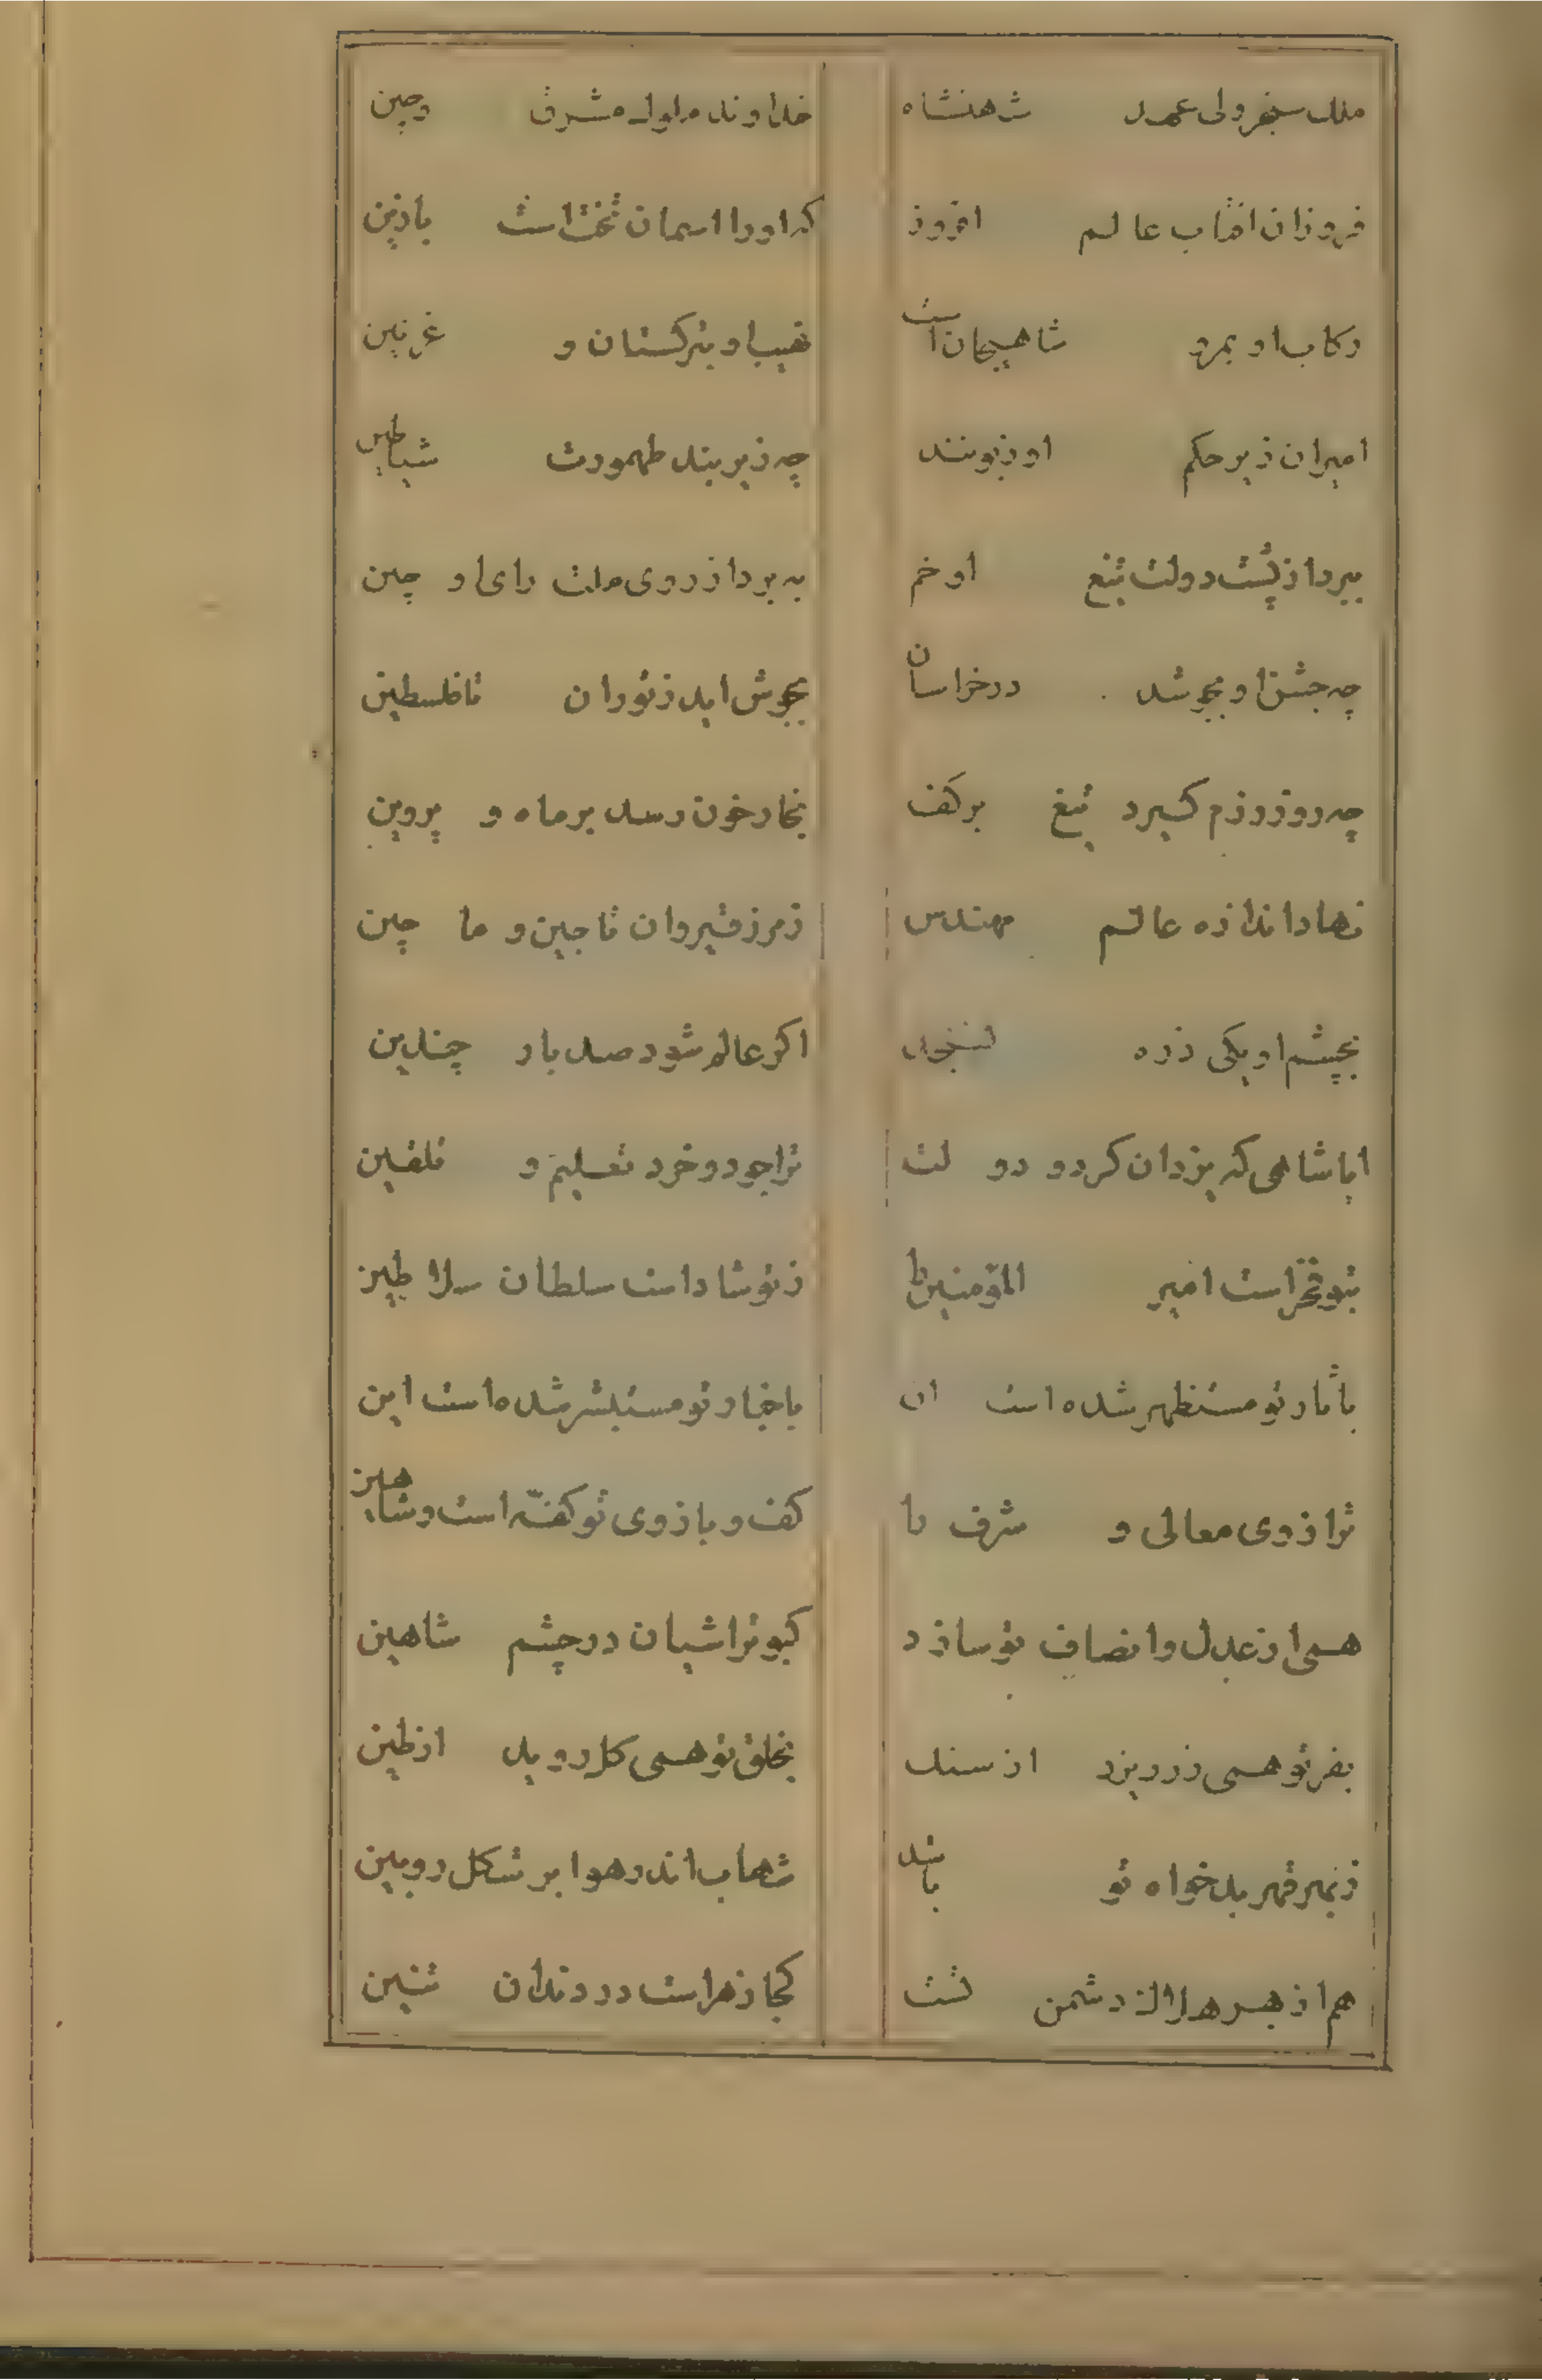 ملک سنجر ولی عهد شهنشاه خداوند ملوک مشرق وچین
فروزان افتاب عالم افروز که اورا اسمان تختست بازین
رکاب او بمرو شاهیجان است نهیب او بترکستان و غزنین
امیران زیر حکم او زبونند چه زیر بند طهمورث شیاطین
ببرد از پشت دولت تیغ او خم به برد از روی ملت رای او چین
چه جشن او بجوشد در خراسان بجوش اید ز توران تا فلسطین
چه روز رزم گیرد تیغ بر کف بخار خون رسد بر ماه و پروین
نهاد اندازه عالم مهندس ز مرز قیروان تا چین و ما چین
بچشم او یکی ذره نسنجد اکر عالم شود صد بار چندین
ایا شاهی که یزدان کرد و دولت ترا جود و خرد تعلیم و تلقین
بتو فخر است امیر المؤمنین را ز تو شاد است سلطان سلاطین
باثار تو مستظهر شده است ان باخبار تو مستبشر شده است این
ترازوی معالی و شرف را کف و بازوی تو کفّه است و شاهین
همی از عدل و انصاف تو سازد کبوتر اشیان در چشم شاهین
بفر تو همی زر ریزد از سنک بخلق تو همی کل روید از طین
ز بهر قهر بدخواه تو باشد شهاب اندر هوا بر شکل روبین
هم از بهر هلاک دشمن تست کجا زهر است در دندان تنین